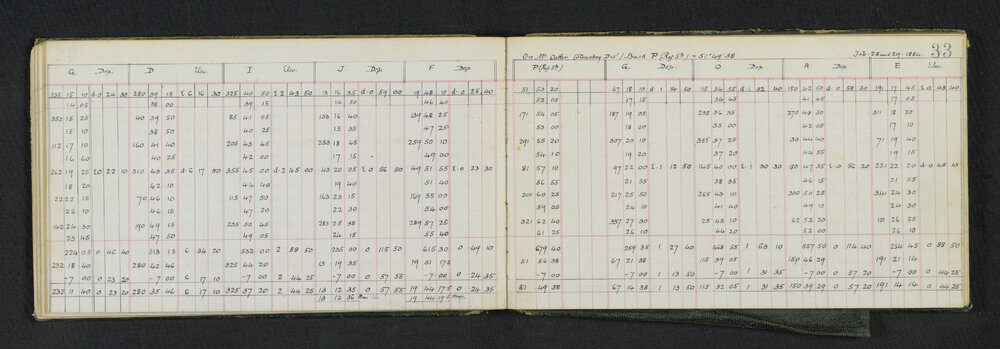 On Mt Cotter (Strachey Dis) Back P (Ry St.) = 51° 49' 38 Feb. 28 and 29. 1884. 33
G Dep. D Elev. I Elev. J Dep F Dep P (Ry St.) G Dep Q Dep A Dep E Elev.
232 15 10 d.0 24 30 280 39 15 E 6 16 30 325 40 50 E.2 43 50 13 14 35 d.0 59 00 19 48 10 d.0 25 40 51 53 20 67 18 10 d.1 14 50 115 34 55 d.1 32 40 150 42 50 d.0 58 20 191 17 45 E.0 43 40
14 05 38 00 39 15 14 50 46 40 52 05 17 15 34 45 41 45 17 05
352 15 25 40 39 50 85 41 05 133 16 40 139 48 25 171 54 05 187 19 05 235 36 35 270 43 50 311 18 20
15 10 38 50 40 25 15 35 47 25 53 00 18 00 35 00 42 05 17 10
112 17 10 160 41 40 205 43 45 253 18 45 259 50 10 291 55 20 307 20 10 355 37 25 30 44 40 71 19 40
16 40 40 25 42 00 17 15 49 00 54 10 19 20 37 20 44 55 19 10
262 19 25 E.0 22 10 310 43 35 d.6 17 50 355 45 00 d.2 45 00 43 20 05 E.0 56 50 49 51 55 E.0 23 30 81 57 10 97 22 00 E.1 12 50 145 40 00 E.1 30 30 180 47 35 E.0 56 20 221 22 20 d.0 45 10
18 20 42 10 44 40 19 40 51 40 56 55 21 55 38 35 46 15 21 05
22 22 15 70 46 10 115 47 50 163 23 15 169 55 00 201 60 25 217 25 50 265 43 10 300 50 25 341 24 30
22 10 46 15 47 20 22 30 54 00 59 05 24 10 41 40 49 10 24 10
142 24 30 190 49 15 235 50 45 283 25 35 289 57 25 321 62 40 337 27 30 25 43 10 62 52 20 101 26 55
23 45 47 50 49 05 24 15 55 40 61 25 26 10 44 20 52 00 26 25
224 05 0 46 40 513 15 6 34 20 532 00 2 88 50 235 00 0 115 50 615 30 0 49 10 679 40 259 35 1 27 40 468 55 1 63 10 557 50 0 114 40 254 45 0 88 50
232 18 40 280 42 46 325 44 20 13 19 35 19 51 17.5 51 56 38 67 21 38 115 39 05 150 46 29 191 21 14
-7 00 0 23 20 -7 00 6 17 10 -7 00 2 44 25 -7 00 0 57 55 -7 00 0 24 35 -7 00 -7 00 1 13 50 -7 00 1 31 35 -7 00 0 57 20 -7 00 0 44 25
232 11 40 0 23 20 280 35 46 6 17 10 325 37 20 2 44 25 13 12 35 0 57 55 19 44 17.5 0 24 35 51 49 38 67 14 38 1 13 50 115 32 05 1 31 35 150 39 29 0 57 20 191 14 14 0 44 25
13 12 36 Mean 19 44 17.5 Mean